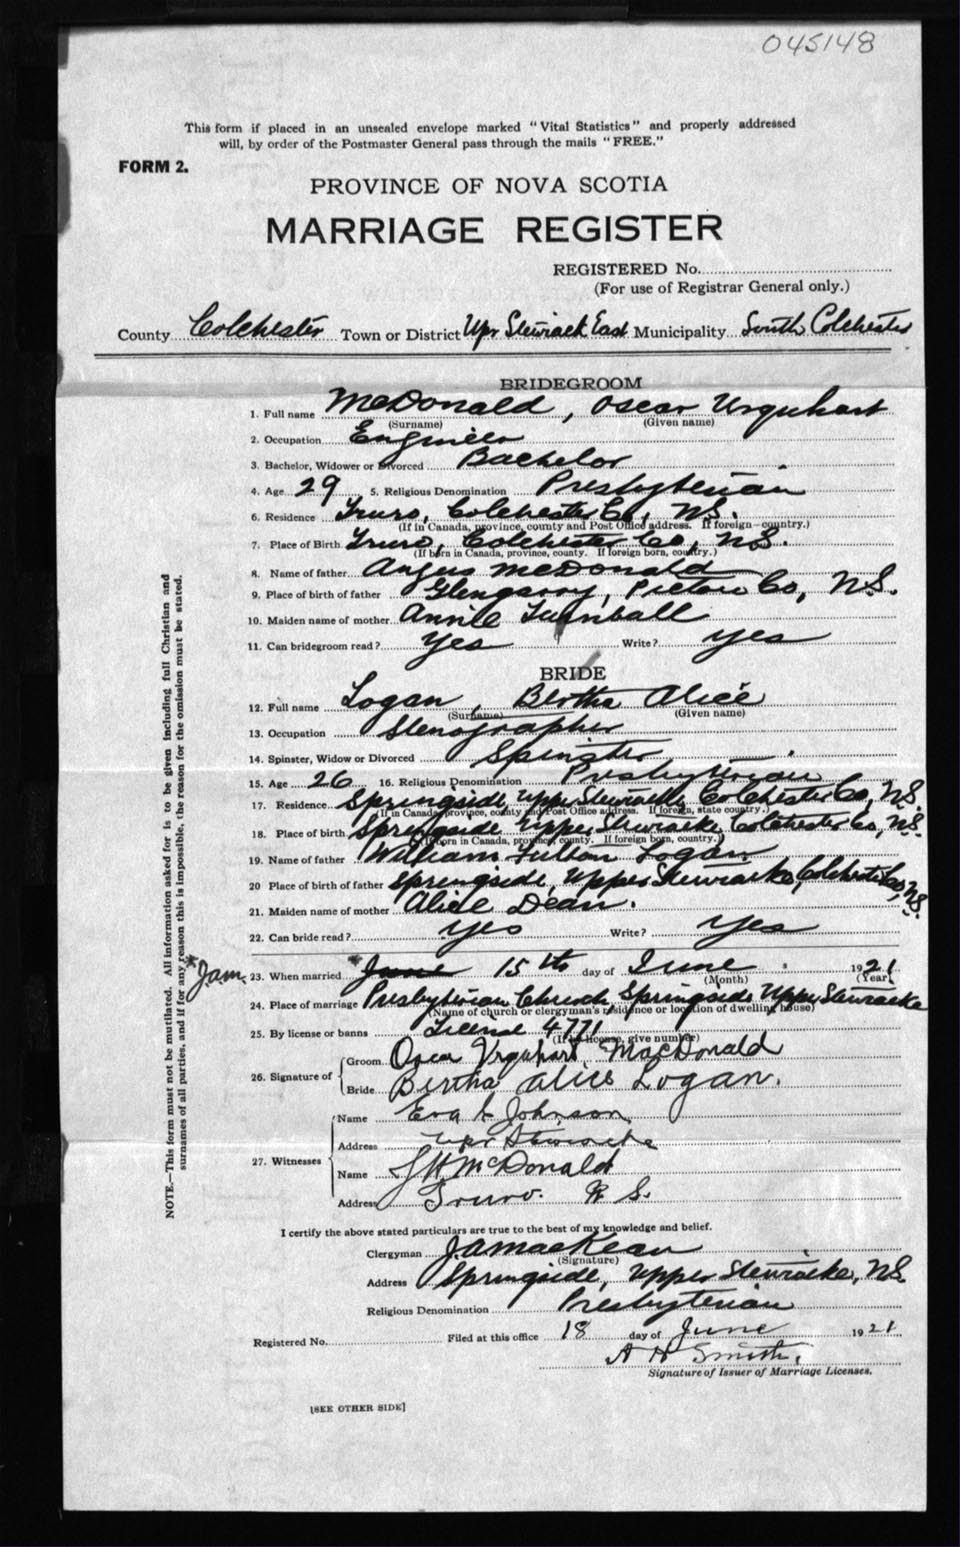 045148
This form if placed in an unsealed envelope marked "Vital Statistics" and properly addressed
will, by order of the Postmaster General pass through the mails "FREE."
FORM 2.
PROVINCE OF NOVA SCOTIA
MARRIAGE REGISTER
REGISTERED No.
(For use of Registrar General only.)
County Colchester Town or District Upr Stewiack East Municipality South Colchester
BRIDEGROOM
1. Full name McDonald, Oscar Urquhart
(Surname) (Given name)
2. Occupation Engineer
3. Bachelor, Widower or Divorced Bachelor
4. Age 29 5. Religious Denomination Presbyterian
6. Residence Truro, Colchester Co, N.S.
(If in Canada, province, county and Post Office address. If foreign—country.)
7. Place of Birth Truro, Colchester Co, N.S.
(If born in Canada, province, county. If foreign born, country.)
8. Name of father Angus McDonald
9. Place of birth of father Glengarry, Pictou Co, N.S.
10. Maiden name of mother Annie Turnball
11. Can bridegroom read? Yes Write? Yes
BRIDE
12. Full name Logan, Bertha Alice
(Surname) (Given name)
13. Occupation Stenographer
14. Spinster, Widow or Divorced Spinster
15. Age 26 16. Religious Denomination Presbyterian
17. Residence Springside, Upper Stewiacke, Colchester Co, N.S.
(If in Canada, province, county and Post Office address. If foreign, state country.)
18. Place of birth Springside Upper Stewiacke Colchester Co, N.S.
(If born in Canada, province, county. If foreign born, country.)
19. Name of father William Fulton Logan
20 Place of birth of father Springside, Upper Stewiacke, Colchester Co, N.S.
21. Maiden name of mother Alice Dean.
22. Can bride read? Yes Write? Yes
*Jam 23. When married *June 15th day of June 1921
(Month) (Year)
24. Place of marriage Presbyterian Church Springside Upper Stewiacke
(Name of church or clergyman's residence or location of dwelling house)
25. By license or banns License 4771
(If by license, give number)
26. Signature of Groom Oscar Urquhart MacDonald
Bride Bertha Alice Logan.
27. Witnesses Name Eva Johnson
Address Upr Stewiacke
Name McDonald
Address Truro. N S.
I certify the above stated particulars are true to the best of my knowledge and belief.
Clergyman J.A. MacKean
(Signature)
Address Springside, Upper Stewiacke, N.S.
Religious Denomination Presbyterian
Registered No. Filed at this office 18 day of June 1921
A H Smith.
Signature of Issuer of Marriage Licenses.
[SEE OTHER SIDE]
NOTE.—This form must not be mutilated. All information asked for is to be given including full Christian and
surnames of all parties, and if for any reason this is impossible, the reason for the omission must be stated.